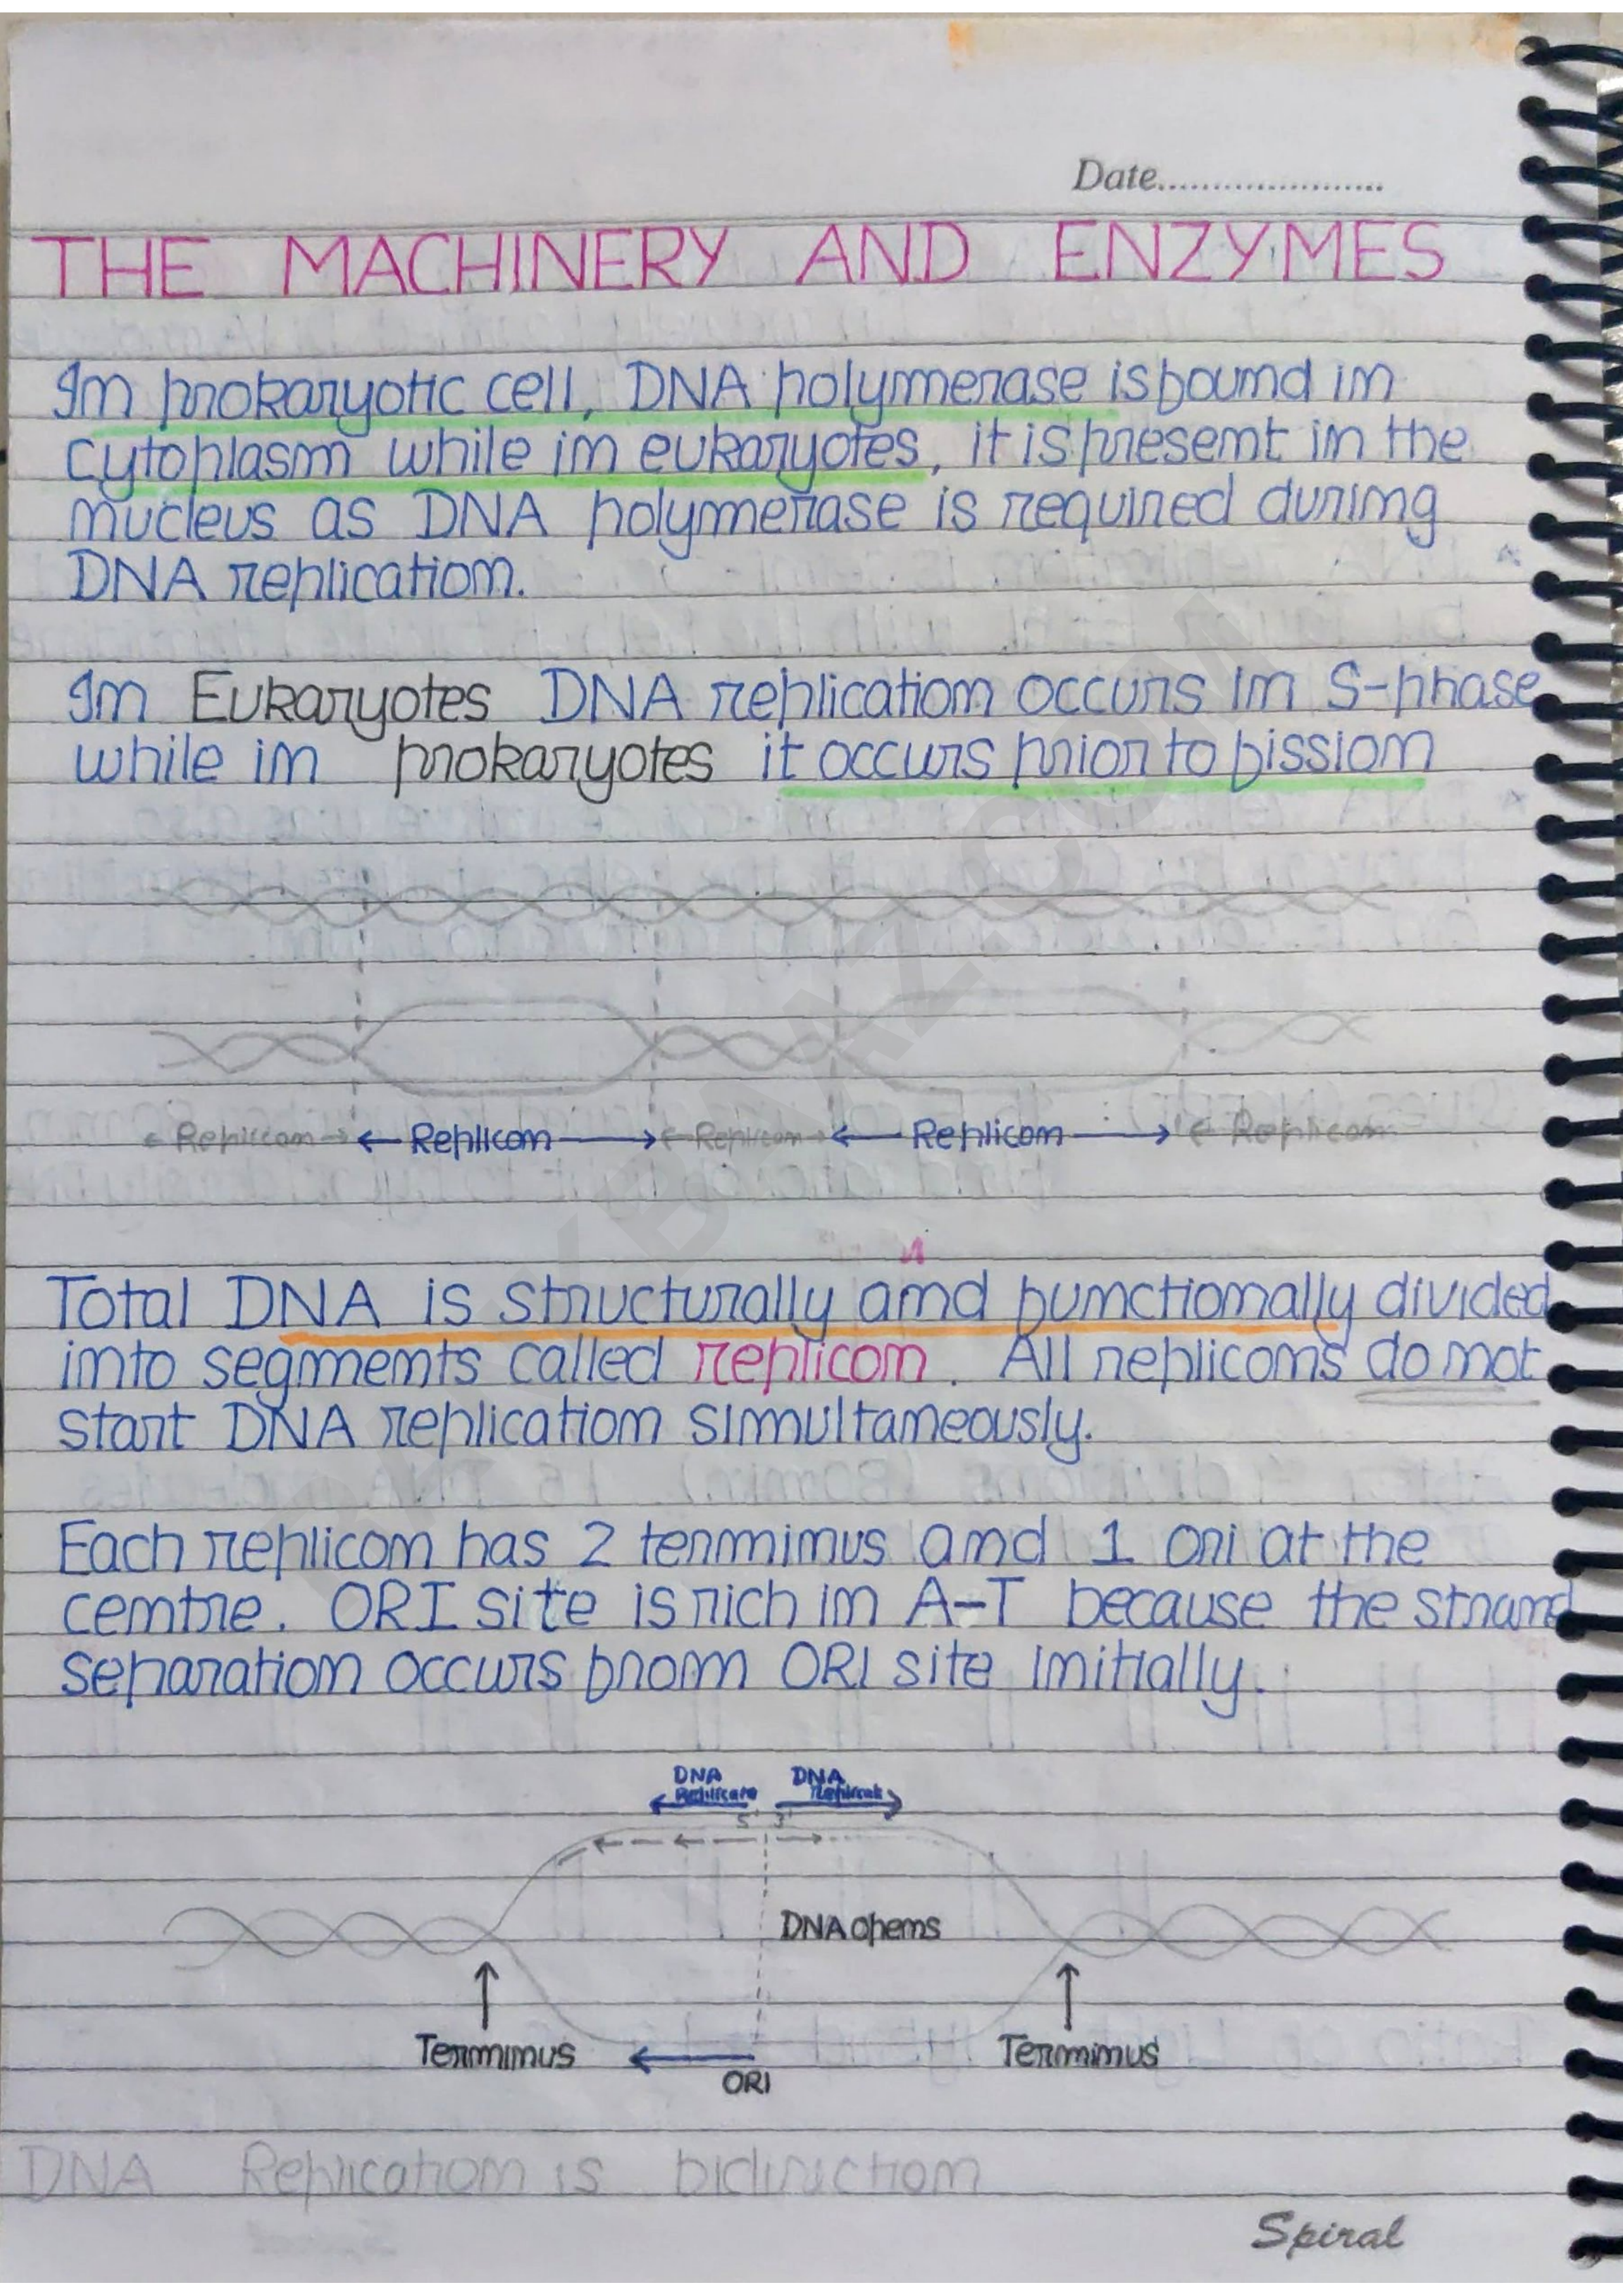 Date......................
THE MACHINERY AND ENZYMES
In prokaryotic cell, DNA polymerase is found in
cytoplasm while in eukaryotes, it is present in the
nucleus as DNA polymerase is required during
DNA replication.
In Eukaryotes DNA replication occurs in S-phase
while in prokaryotes it occurs prior to fission
Replicon Replicon Replicon Replicon Replicon
Total DNA is structurally and functionally divided
into segments called replicon. All replicons do not
start DNA replication simultaneously.
Each replicon has 2 terminus and 1 ori at the
centre. ORI site is rich in A-T because the strand
separation occurs from ORI site initially.
DNA DNA
5' 3'
DNA opens
Terminus Terminus
ORI
DNA Replication is bidirection
Spiral